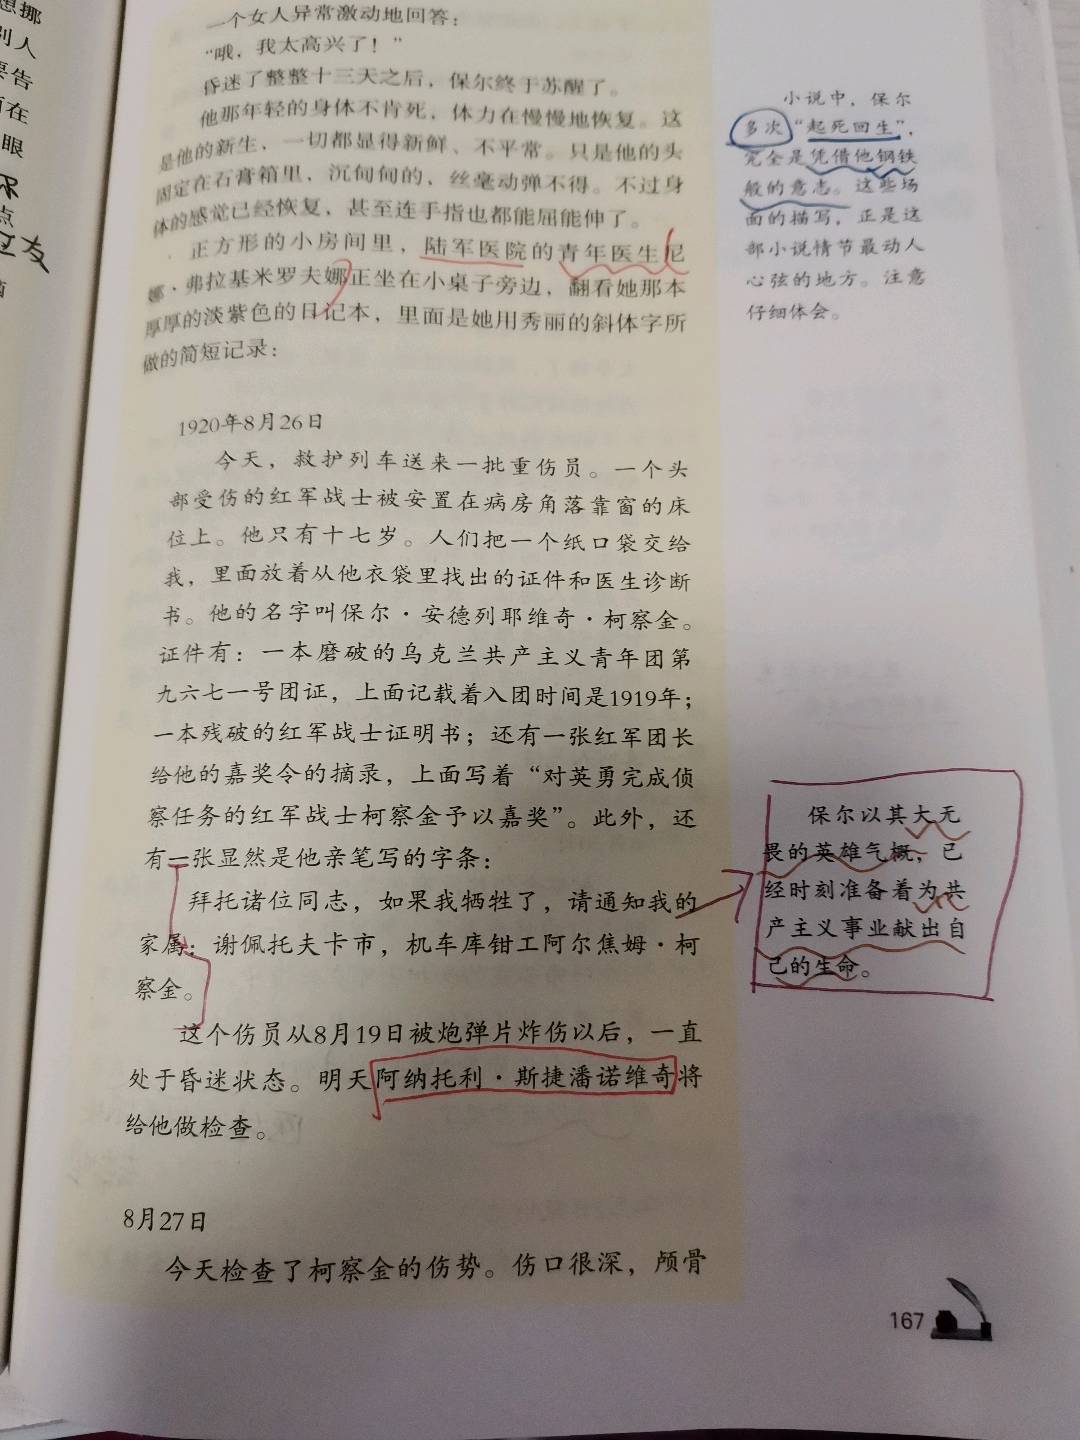 想挪
别人
要告
而在
眼
点
立友
一个女人异常激动地回答：
“哦，我太高兴了！”
昏迷了整整十三天之后，保尔终于苏醒了。
他那年轻的身体不肯死，体力在慢慢地恢复。这
是他的新生，一切都显得新鲜、不平常。只是他的头
固定在石膏箱里，沉甸甸的，丝毫动弹不得。不过身
体的感觉已经恢复，甚至连手指也都能屈能伸了。
正方形的小房间里，陆军医院的青年医生尼
娜·弗拉基米罗夫娜正坐在小桌子旁边，翻看她那本
厚厚的淡紫色的日记本，里面是她用秀丽的斜体字所
做的简短记录：
1920年8月26日
今天，救护列车送来一批重伤员。一个头
部受伤的红军战士被安置在病房角落靠窗的床
位上。他只有十七岁。人们把一个纸口袋交给
我，里面放着从他衣袋里找出的证件和医生诊断
书。他的名字叫保尔·安德列耶维奇·柯察金。
证件有：一本磨破的乌克兰共产主义青年团第
九六七一号团证，上面记载着入团时间是1919年；
一本残破的红军战士证明书；还有一张红军团长
给他的嘉奖令的摘录，上面写着“对英勇完成侦
察任务的红军战士柯察金予以嘉奖”。此外，还
有一张显然是他亲笔写的字条：
拜托诸位同志，如果我牺牲了，请通知我的
家属：谢佩托夫卡市，机车库钳工阿尔焦姆·柯
察金。
这个伤员从8月19日被炮弹片炸伤以后，一直
处于昏迷状态。明天阿纳托利·斯捷潘诺维奇将
给他做检查。
8月27日
今天检查了柯察金的伤势。伤口很深，颅骨
小说中，保尔
多次“起死回生”，
完全是凭借他钢铁
般的意志。这些场
面的描写，正是这
部小说情节最动人
心弦的地方。注意
仔细体会。
保尔以其大无
畏的英雄气概，已
经时刻准备着为共
产主义事业献出自
己的生命。
167